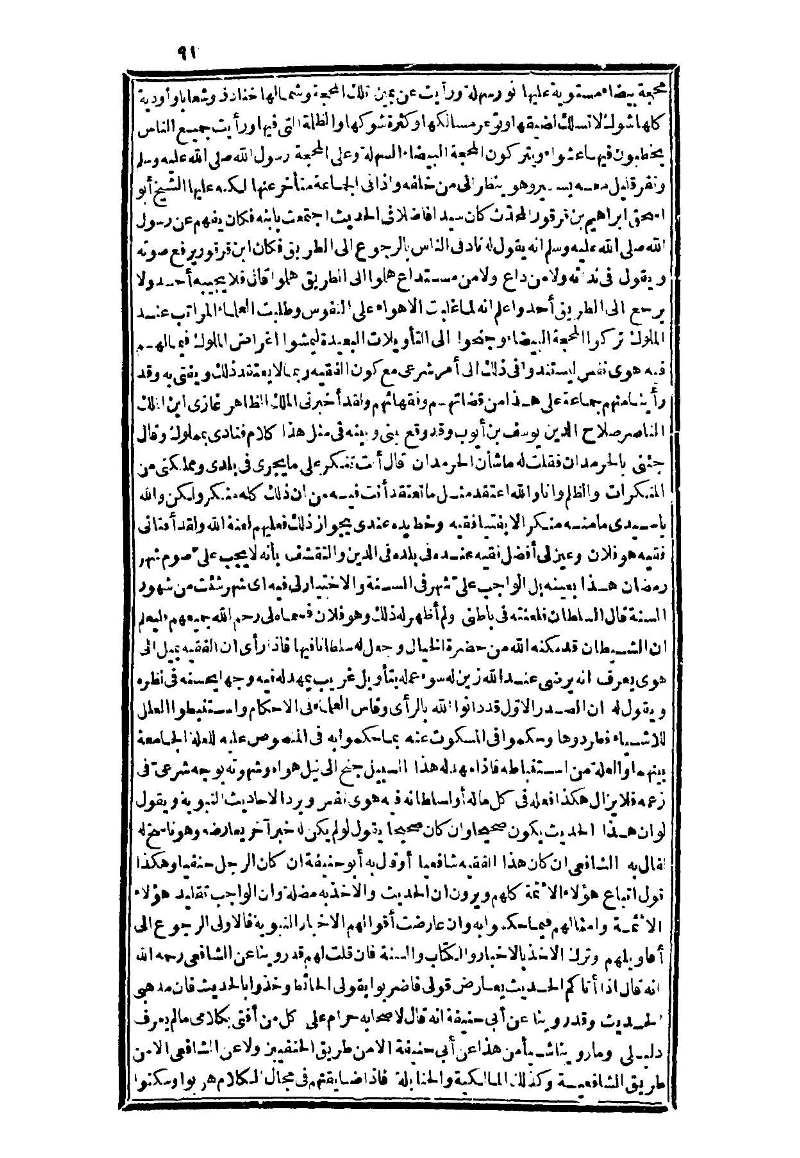 ٩١
محجة بيضاء مستوية عليها نور سهلة ورأيت عن يمين تلك المحجة وشمالها خنادق وشعابا وأودية
كلها شوك لا تسلك لضيقها وتوعر مسالكها وكثرة شوكها والظلمة التى فيها ورأيت جميع الناس
يخبطون فيها عشواء ويتركون المحجة البيضاء السهلة وعلى المحجة رسول الله صلى الله عليه وسلم
ونفر قليل معه يسير وهو ينظر الى من خلفه واذا فى الجماعة متأخر عنها لكنه عليها الشيخ أبو
اسحق ابراهيم بن قرقور المحدث كان سيدا فاضلا فى الحديث اجتمعت بابنه فكان يفهم عن رسول
الله صلى الله عليه وسلم انه يقول له ناد فى الناس بالرجوع الى الطريق فكان ابن قرقور يرفع صوته
ويقول فى ندائه ولا من داع ولا من مستداع هلموا الى الطريق هلموا قال فلا يجيبه أحد ولا
يرجع الى الطريق أحد واعلم انه لما غلبت الاهواء على النفوس وطلبت العلماء المراتب عند
الملوك تركوا المحجة البيضاء وجنحوا الى التأويلات البعيدة ليمشوا اغراض الملوك فيما لهم
فيه هوى نفس ليستندوا فى ذلك الى أمر شرعى مع كون الفقيه ربما لا يعتقد ذلك ويفتى به وقد
رأينا منهم جماعة على هذا من قضاتهم وفقهائهم ولقد أخبرنى الملك الظاهر غازى ابن الملك
الناصر صلاح الدين يوسف بن أيوب وقد وقع بينى وبينه فى مثل هذا كلام فنادى بمملوك وقال
جئنى بالحرمدان فقلت له ما شأن الحرمدان قال أنت تنكر على ما يجرى فى بلدى ومملكتى من
المنكرات والظلم وانا والله اعتقد مثل ما تعتقد أنت فيه من ان ذلك كله منكر ولكن والله
يا سيدى ما منه منكر الا بفتيا فقيه وخط يده عندى بجواز ذلك فعليهم لعنة الله ولقد أفتانى
فقيه هو فلان وعين لى أفضل فقيه عنده فى بلده فى الدين والتقشف بأنه لا يجب على صوم شهر
رمضان هذا بعينه بل الواجب على شهر فى السنة والاختيار لى فيه اى شهر شئت من شهور
السنة قال السلطان فلعنته فى باطنى ولم أظهر له ذلك وهو فلان فسماه لى رحم الله جميعهم فليعلم
ان الشيطان قد مكنه الله من حضرة الخيال وجعل له سلطانا فيها فاذا رأى ان الفقيه يميل الى
هوى يعرف انه يردى عند الله زين له سوء عمله بتأويل غريب يمهد له فيه وجها يحسنه فى نظره
ويقول له ان الصدر الاول قد دانوا الله بالرأى وقاس العلماء فى الاحكام واستنبطوا العلل
للاشياء وطردوها وحكموا فى المسكوت عنه بما حكموا به فى المنصوص عليه للعلة الجامعة
بينهما والعلة من استنباطه فاذا مهد له هذا السبيل جنح الى نيل هواه وشهوته بوجه شرعى فى
زعمه فلا يزال هكذا فعله فى كل ماله أو لسلطانه فيه هوى نفس ويرد الاحاديث النبوية ويقول
لو ان هذا الحديث يكون صحيحا وان كان صحيحا يقول لو لم يكن له خبر آخر يعارضه وهو ناسخ له
لقال به الشافعى ان كان هذا الفقيه شافعيا أو قال به أبو حنيفة ان كان الرجل حنفيا وهكذا
قول اتباع هؤلاء الأئمة كلهم ويرون ان الحديث والاخذ به مضلة وان الواجب تقليد هؤلاء
الأئمة وامثالهم فيما حكموا به وان عارضت أقوالهم الاخبار النبوية فالاولى الرجوع الى
أقاويلهم وترك الاخذ بالاخبار والكتاب والسنة فان قلت لهم قد روينا عن الشافعى رحمه الله
انه قال اذا أتاكم الحديث يعارض قولى فاضربوا بقولى الحائط وخذوا بالحديث فان مذهبى
الحديث وقد روينا عن أبى حنيفة انه قال لاصحابه حرام على كل من أفتى بكلامى ما لم يعرف
دليلى وما روينا شيأ من هذا عن أبى حنيفة الا من طريق الحنفيين ولا عن الشافعى الا من
طريق الشافعية وكذلك المالكية والحنابلة فاذا ضايقتهم فى مجال الكلام هربوا وسكتوا